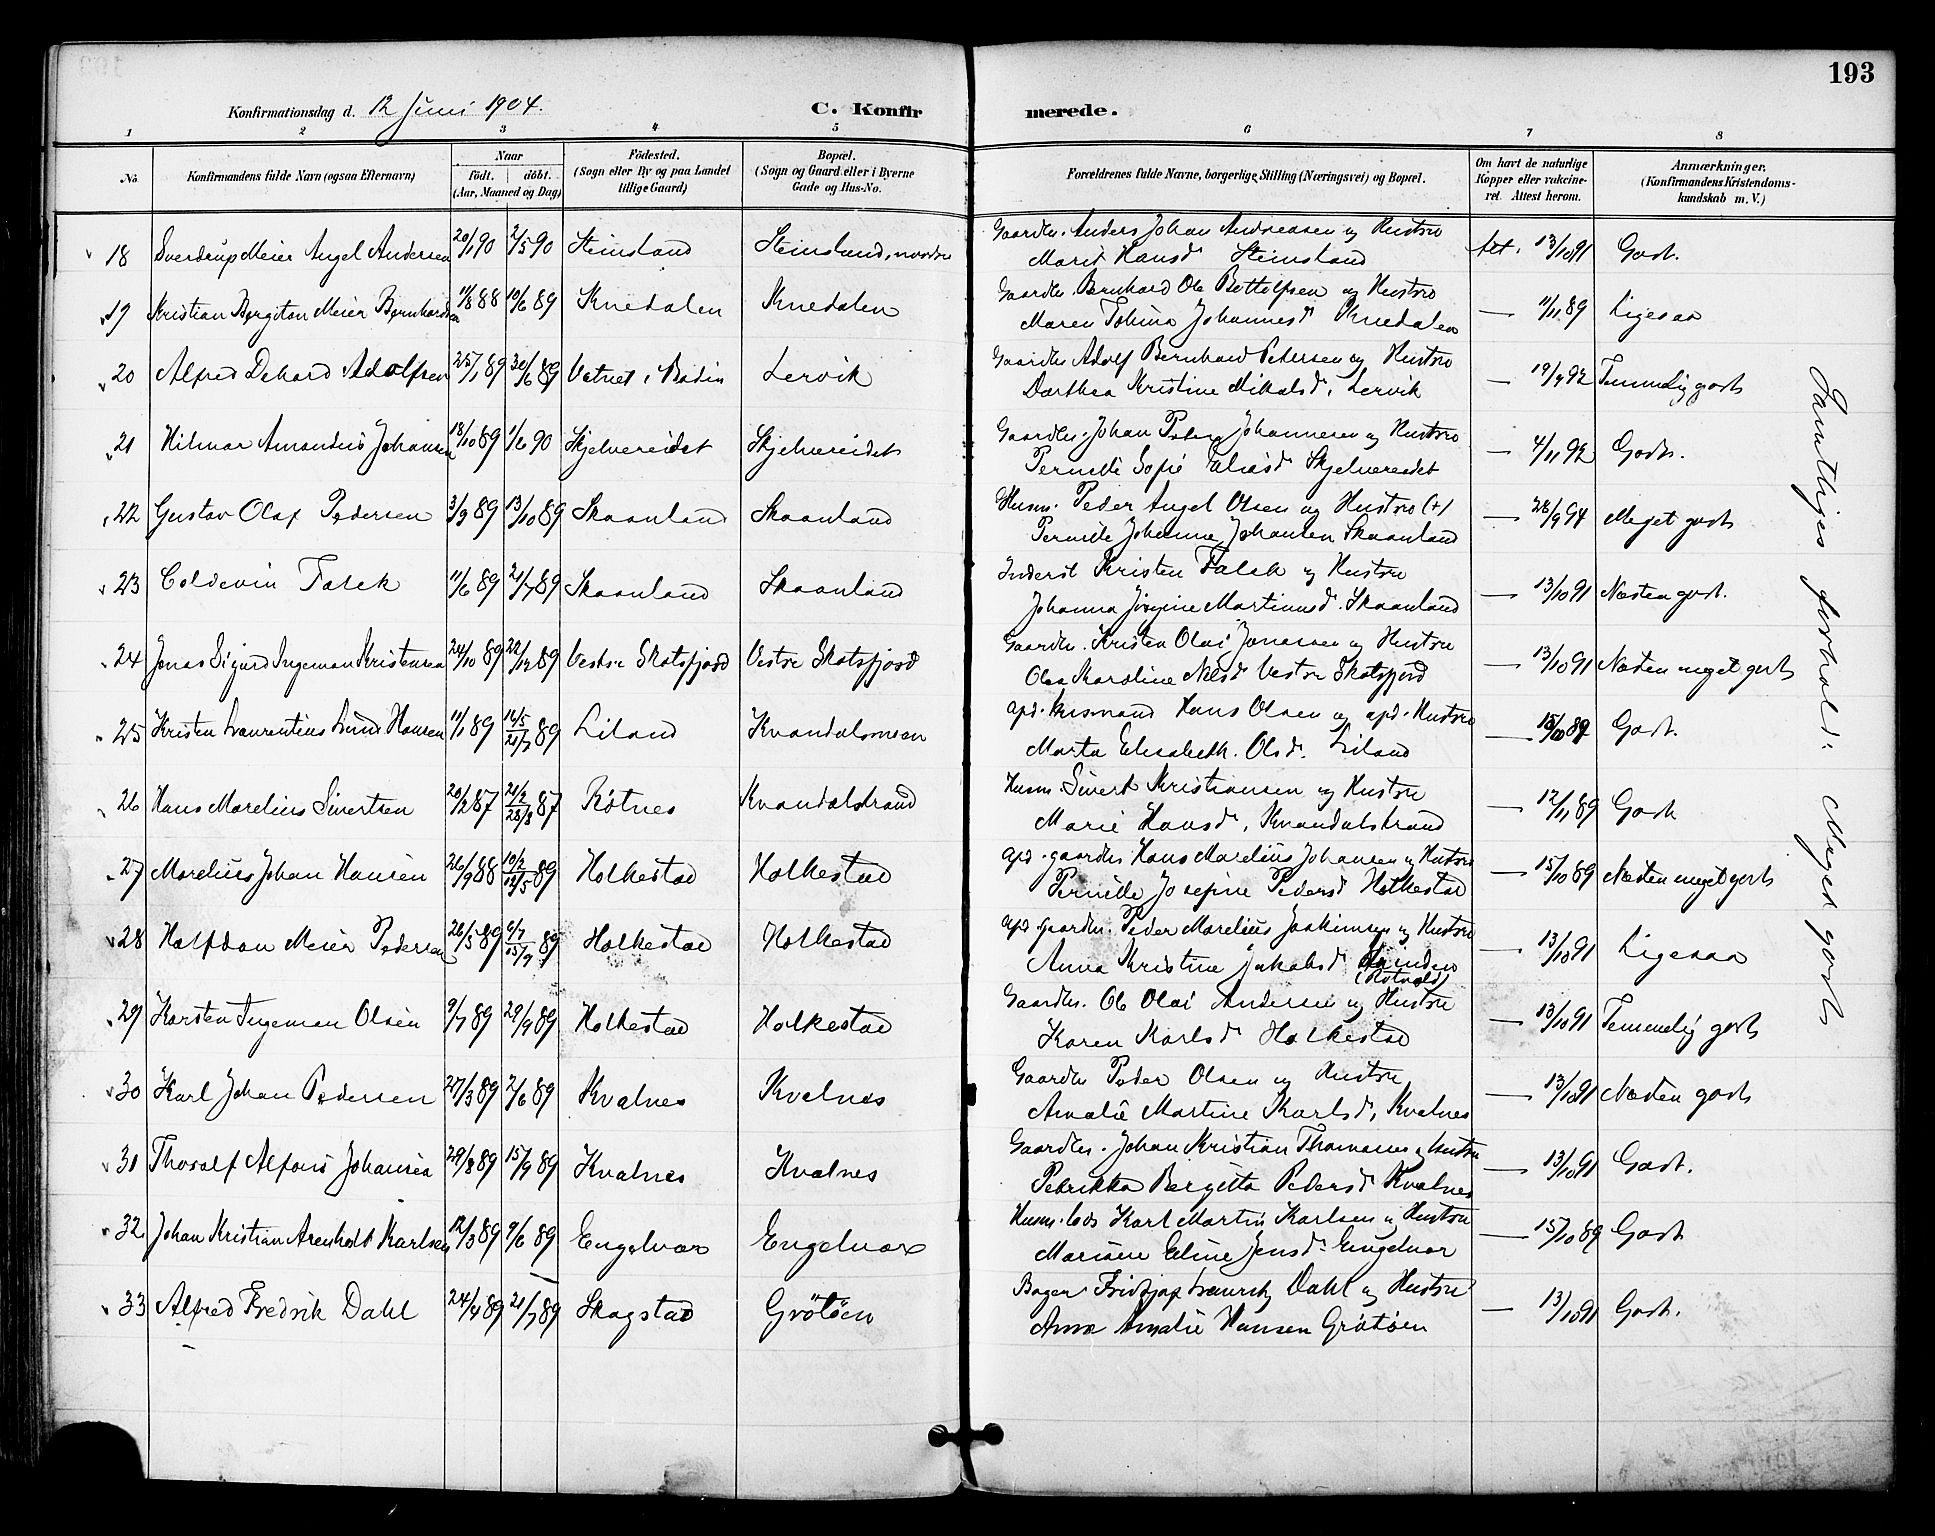 193
Konfirmationsdag d. 12 Juni 1904.
C. Konfirmerede.
1 2 3 4 5 6 7 8
No.
Konfirmandens fulde Navn (ogsaa Efternavn)
Naar
födt. döbt.
(Aar, Maaned og Dag)
Födested.
(Sogn eller By og paa Landet
tillige Gaard)
Bopæl.
(Sogn og Gaard eller i Byerne
Gade og Hus-No.
Forældrenes fulde Navne, borgerlige Stilling (Næringsvei) og Bopæl.
Om havt de naturlige
Kopper eller vakcine-
ret. Attest herom.
Anmærkninger.
(Konfirmandens Kristendoms-
kundskab m. V.)
18 Sverdrup Meier Angel Andersen 20/1 90 2/5 90 Steinsland Steinsland, nordre Gaardbr. Anders Johan Andreasen og Hustro
Marit Hansd Steinsland Att. 13/10 91 Godt.
19 Kristian Bergiton Meier Bernhardsen 11/8 88 10/6 89 Knedalen Knedalen Gaardbr. Bernhard Ole Bottolfsen og Hustro
Maren Tobina Johannesd Knedalen — 11/11 89 Ligesaa
20 Alfred Dehard Adolfsen 25/1 89 30/6 89 Vatnet i Bodin Lervik Gaardbr Adolf Bernhard Petersen og Hustro
Dorthea Kristine Mikalsd, Lervik — 19/9 92 Temmelig godt
21 Hilmar Amandus Johansen 18/10 89 1/6 90 Skjelvereidet Skjelvereidet Gaardbr. Johan Peter Johannesen og Hustro
Pernille Sofie Eliasd Skjelvereidet — 4/11 92 Godt.
22 Gustav Olaf Pedersen 3/9 89 13/10 89 Skaanland Skaanland Husm. Peder Angel Olsen og Hustro (+)
Pernille Johanna Johansen Skaanland — 28/9 94 Meget godt
23 Coldevin Falck 11/6 89 21/7 89 Skaanland Skaanland Inderst Kristen Falck og Hustro
Johanna Jörgine Martinusd. Skaanland — 13/10 91 Næsten godt.
24 Jonas Sigurd Ingeman Kristensen 24/10 89 22/12 89 Vestre Skotsfjord Vestre Skotsfjord Gaardbr. Kristen Olai Jonassen og Hustro
Olea Karoline Nilsd Vestre Skotsfjord — 13/10 91 Næsten meget godt
25 Kristen Laurentius Lund Hansen 11/1 89 16/5 21/7 89 Liland Kvandalsmoen apd. Husmand Hans Olsen og apd. Hustro
Marta Elisabeth. Olsd. Liland — 15/10 89 Godt.
26 Hans Marelius Sivertsen 20/2 87 21/2 28/8 87 Rötnes Kvandalstrand Husm. Sivert Kristiansen og Hustro
Marie Hansd, Kvandalstrand — 12/11 89 Godt
27 Marelius Johan Hansen 26/9 88 10/2 12/5 89 Holkestad Holkestad apd. gaardbr. Hans Marelius Johansen og Hustro
Pernille Josefine Pedersd Holkestad — 15/10 89 Næsten meget godt
28 Halfdan Meier Pedersen 26/5 89 6/7 15/9 89 Holkestad Holkestad apd. gaardbr. Peder Marelius Joakimsen og Hustro
Anna Kristine Jakobsd — 13/10 91 Ligesaa
29 Karsten Ingeman Olsen 9/7 89 29/9 89 Holkestad Holkestad Gaardbr. Ole Olai Andersen og Hustro
Karen Karlsd Holkestad — 13/10 91 Temmelig godt
30 Karl Johan Pedersen 27/3 89 2/6 89 Kvalnes Kvalnes Gaardbr Peder Olsen og Hustro
Amalie Martine Karlsd, Kvalnes — 13/10 91 Næsten godt
31 Thoralf Alfons Johansen 29/8 89 15/9 89 Kvalnes Kvalnes Gaardbr. Johan Kristian Thomassen og Hustro
Petrikka Bergitta Pedersd Kvalnes — 13/10 91 Godt.
32 Johan Kristian Arenholdt Karlsen 12/3 89 9/6 89 Engelvær Engelvær Husm. Karl Martin Karlsen og Hustro
Mariane Eline Jensd. Engelvær — 15/10 89 Godt
33 Alfred Fredrik Dahl 24/4 89 21/7 89 Skagstad Grötöen Bager Fridtjof Dahl og Hustro
Anna Amalie Hansen Grötöen — 13/10 91 Godt.
Samtliges forhold: Meget godt